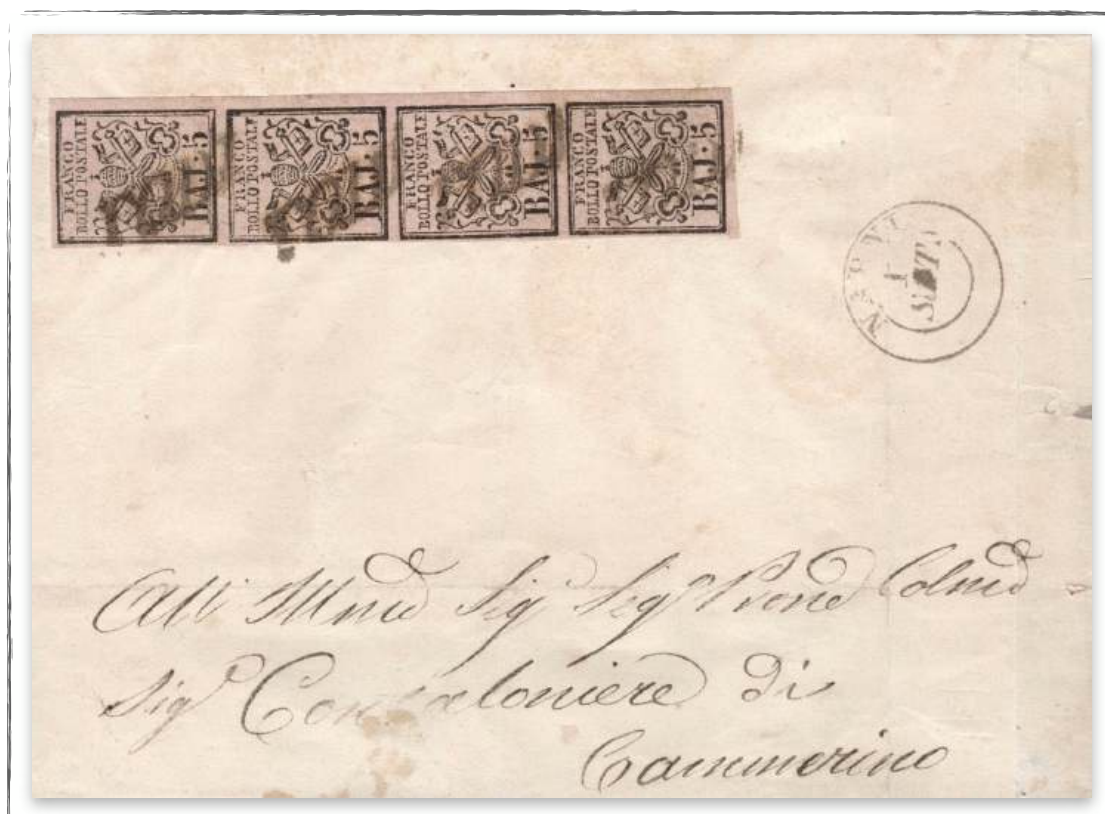 FRANCO
BOLLO POSTALE
BAJ. 5
FRANCO
BOLLO POSTALE
BAJ. 5
FRANCO
BOLLO POSTALE
BAJ. 5
FRANCO
BOLLO POSTALE
BAJ. 5
1
All' Illmo Sig Sig Prone Colmo
Sigr Confaloniere Di
Cammerino